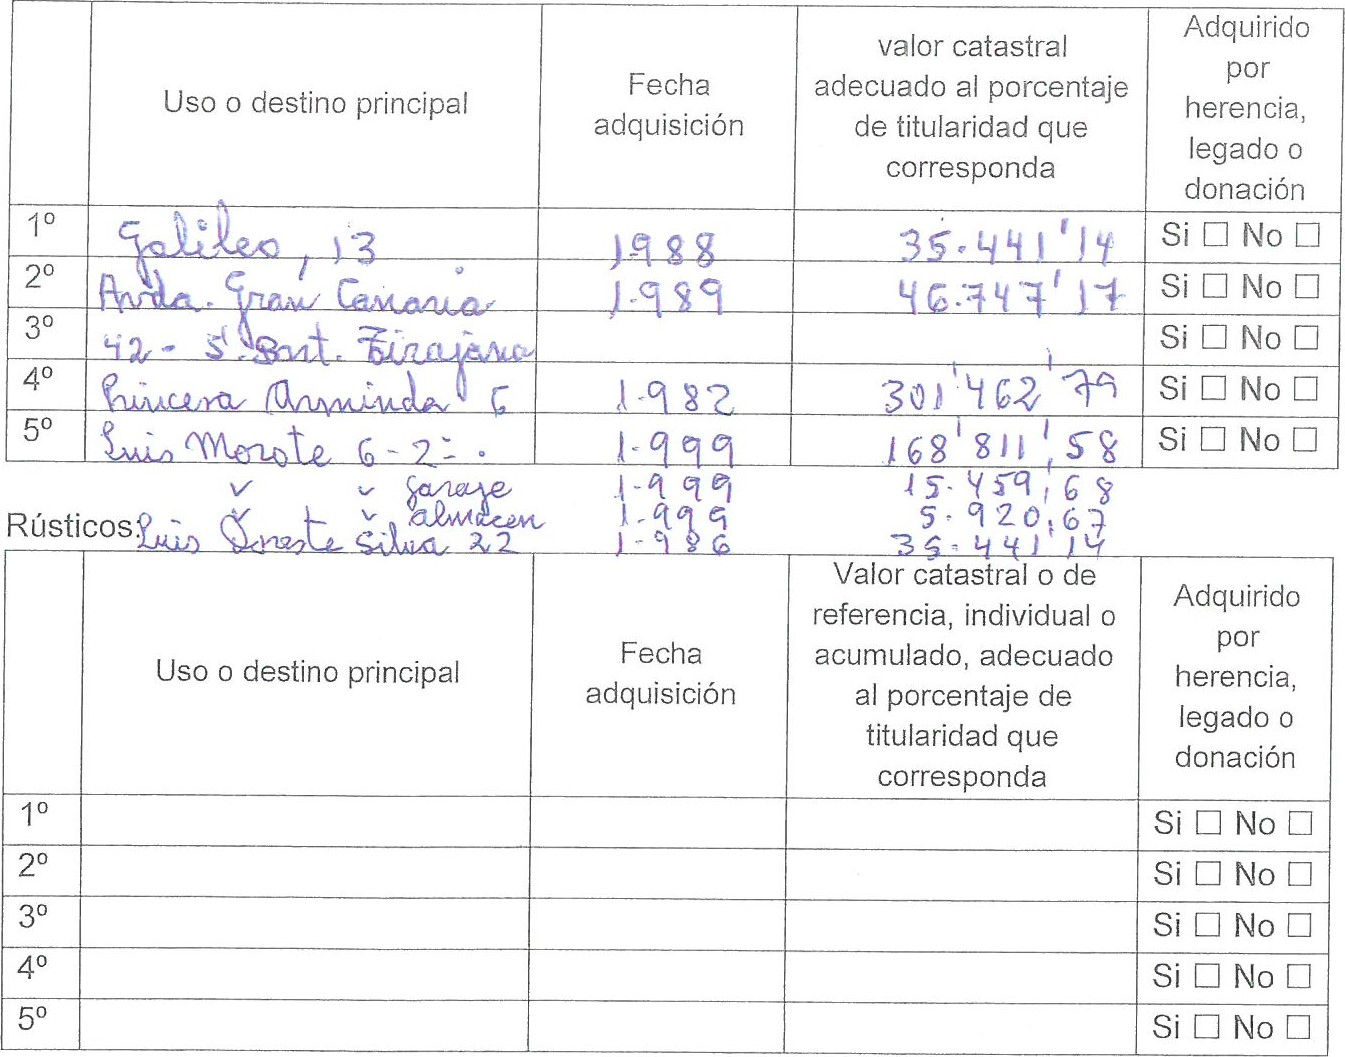 Uso o destino principal
Fecha adquisición
valor catastral adecuado al porcentaje de titularidad que corresponda
Adquirido por herencia, legado o donación
1º Galileo, 13 1988 35.441'14 Si ☐ No ☐
2º Avda. Gran Canaria 1.989 46.747'17 Si ☐ No ☐
3º 42 - S. Bart. Tirajana Si ☐ No ☐
4º Princesa Arminda 6 1.982 301'462'79 Si ☐ No ☐
5º Luis Morote 6-2º 1.999 168'811'58 Si ☐ No ☐
garaje 1.999 15.459,68
almacen 1.999 5.920,67
Rústicos: Luis Doreste Silva 22 1.986 35.441'14
Uso o destino principal
Fecha adquisición
Valor catastral o de referencia, individual o acumulado, adecuado al porcentaje de titularidad que corresponda
Adquirido por herencia, legado o donación
1º Si ☐ No ☐
2º Si ☐ No ☐
3º Si ☐ No ☐
4º Si ☐ No ☐
5º Si ☐ No ☐